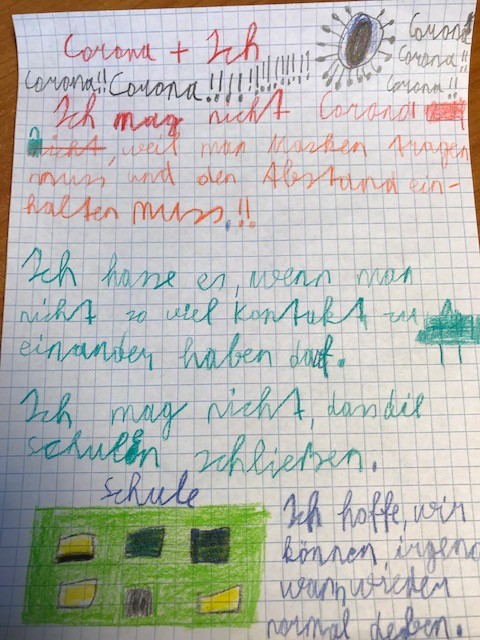 Corona + Ich
Corona
Corona!!
Corona!!
Corona!! Corona!!!!!!!!!!!!
Ich mag nicht Corona
nicht, weil man Masken tragen
muss und den Abstand ein-
halten muss.!!
Ich hasse es, wenn man
nicht so viel Kontakt zu
einander haben darf.
Ich mag nicht, dass die
schulen schließen.
Schule
Ich hoffe, wir
können irgend
wann wieder
normal leben.